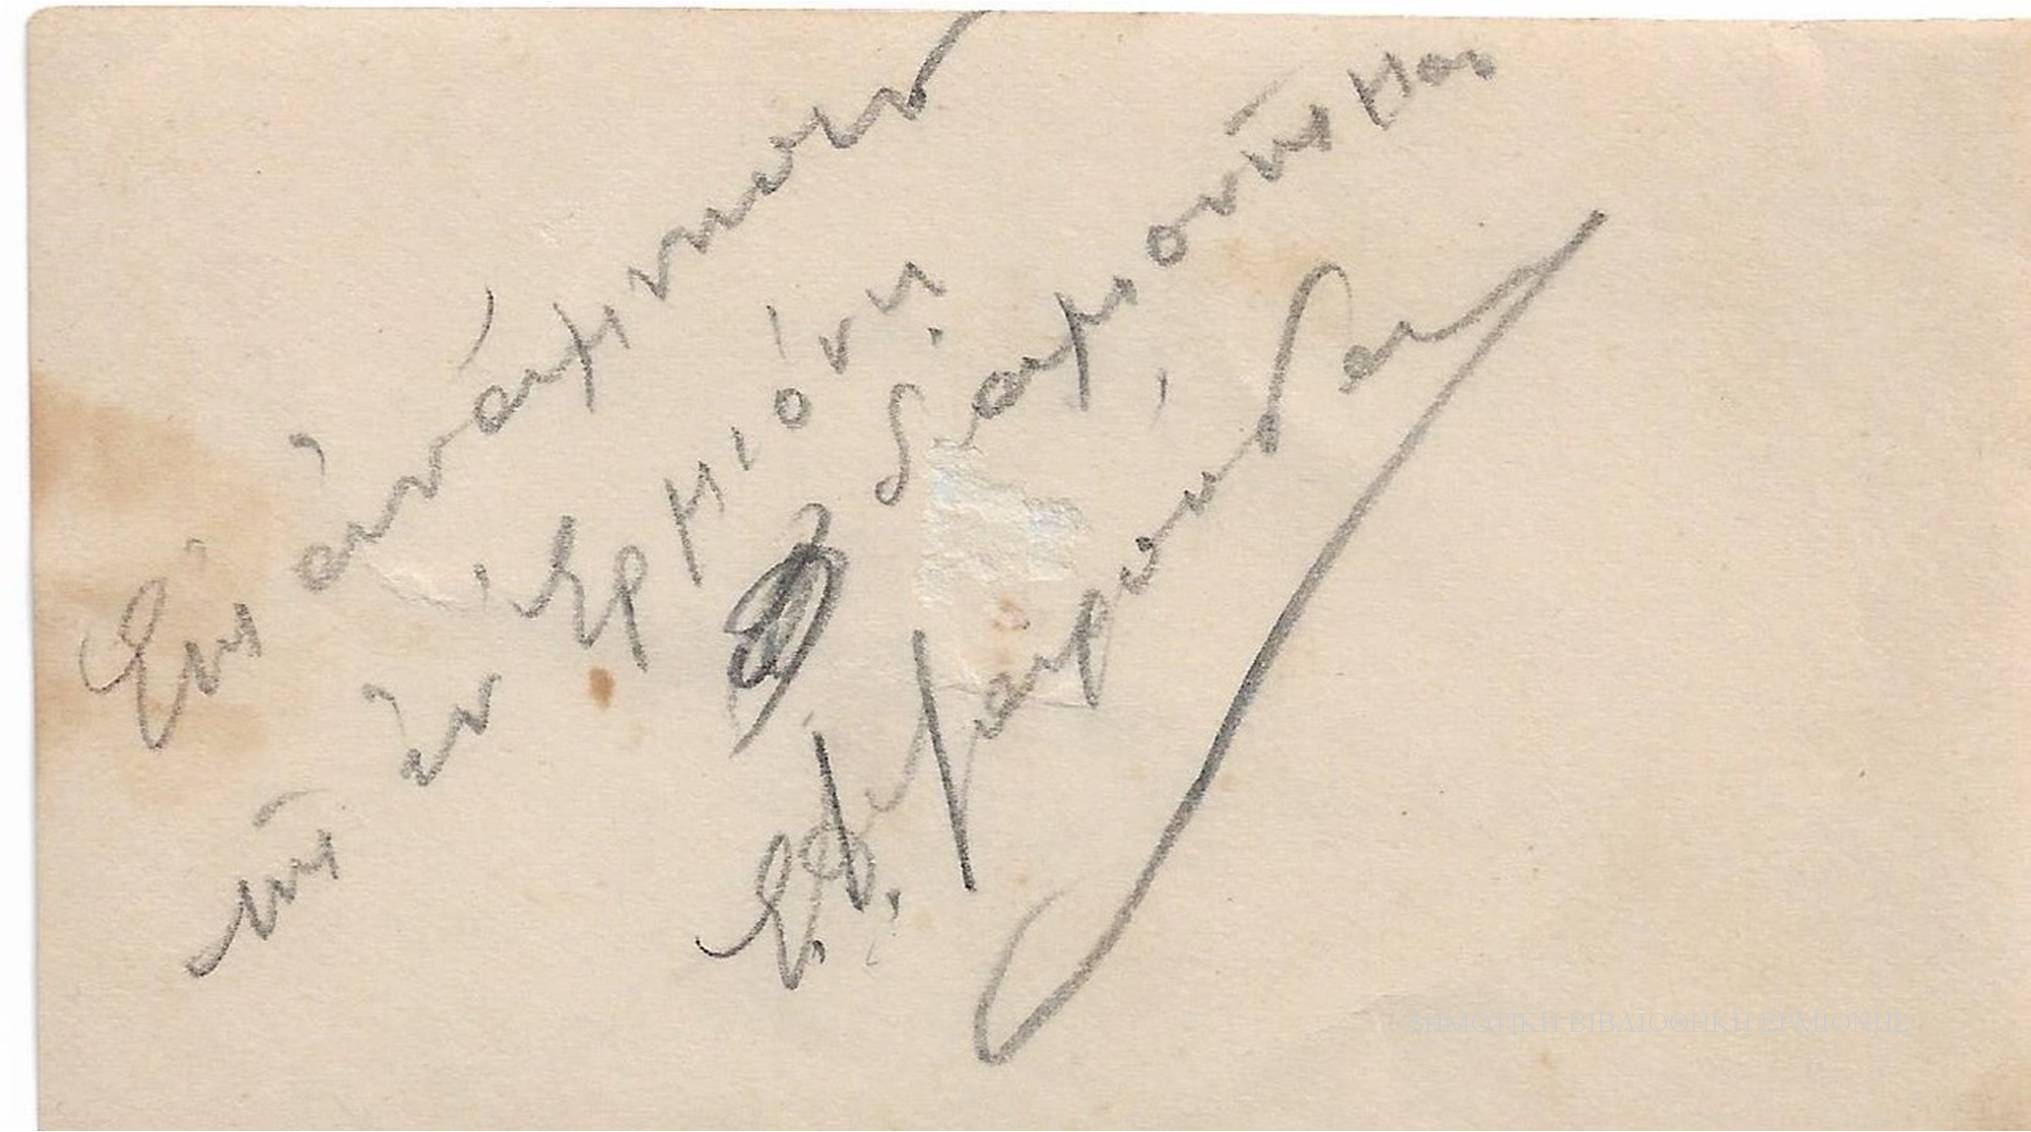 Εἰς ἀνάμνησιν
τῆς ἐν Ἑρμιόνῃ
διαμονῆς μου
ΔΗΜΟΤΙΚΗ ΒΙΒΛΙΟΘΗΚΗ ΕΡΜΙΟΝΗΣ